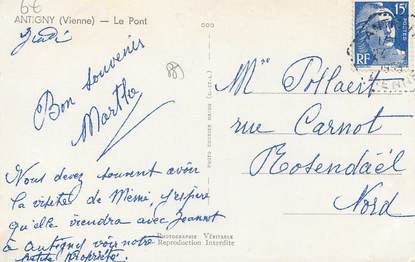 6€
ANTIGNY (Vienne) — Le Pont
Jeudi
Bon souvenir
Marthe
Nous devez souvent avoir
la visite de Mémé, j'espère
qu'elle viendra avec Jeannot
à antigny voir notre
petite propriété.
PHOTOGRAPHIE VÉRITABLE
Reproduction Interdite
15F
POSTES
RF
rue Carnot
Rosendaël
Nord